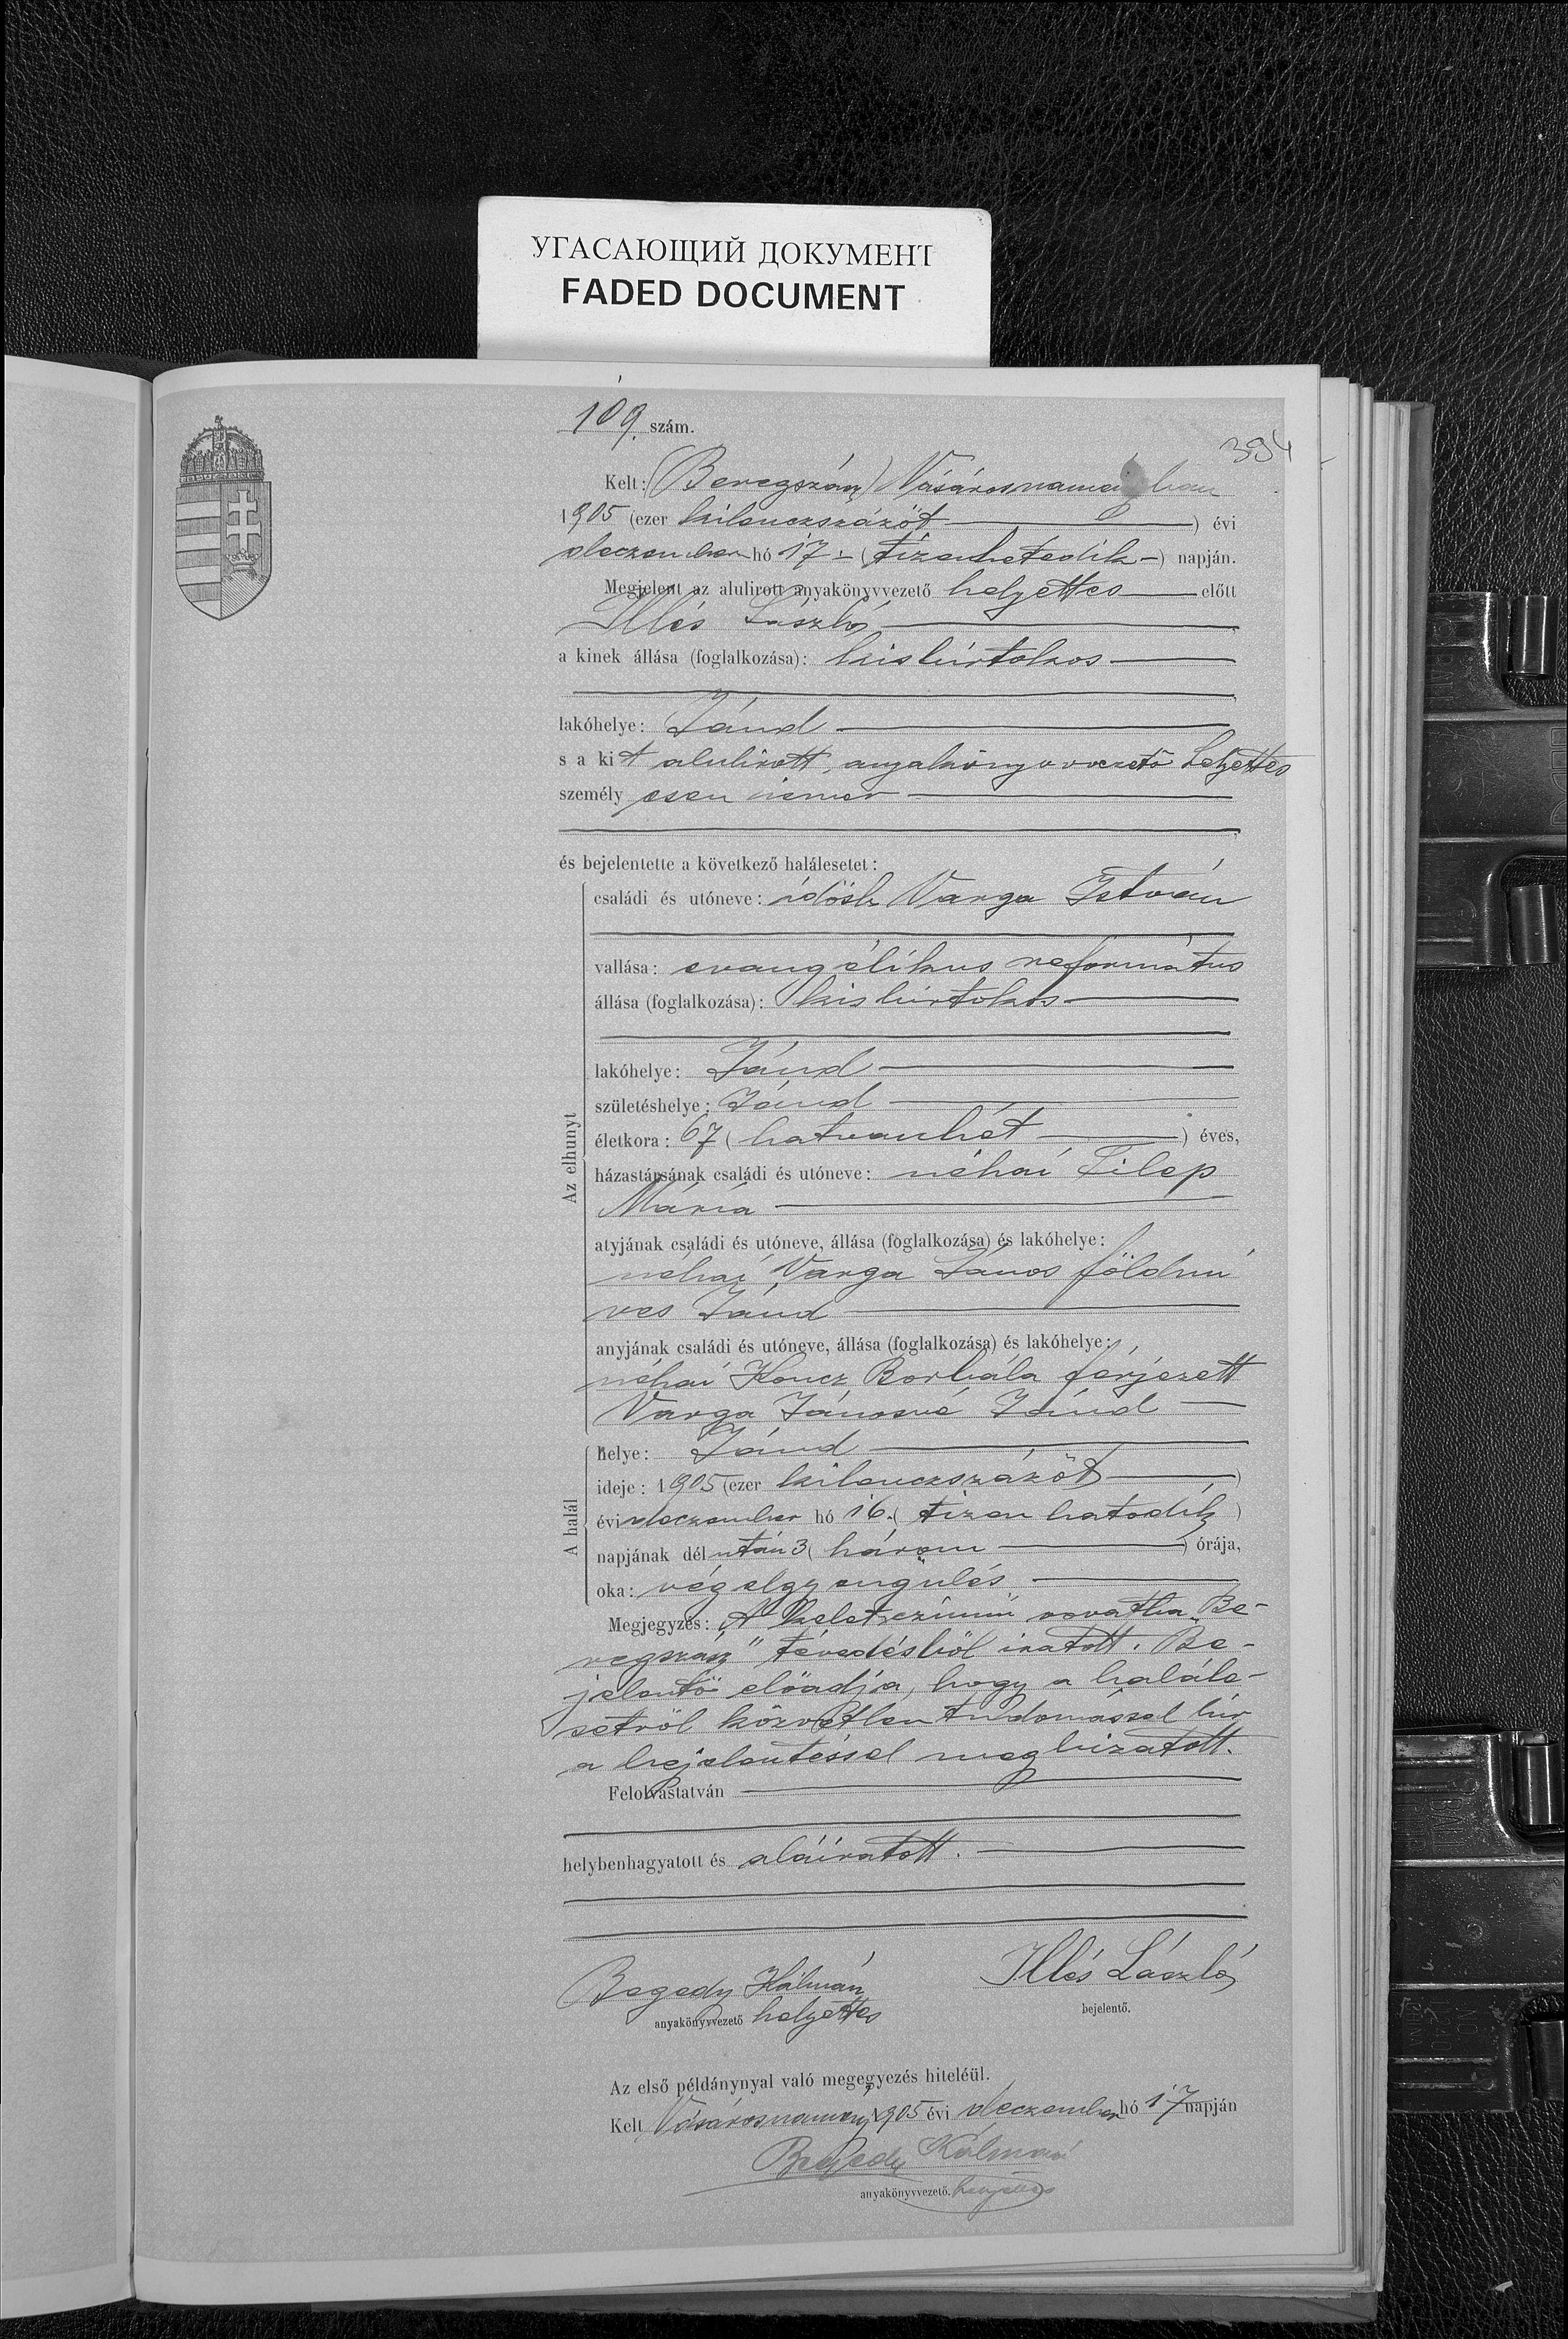 УГАСАЮЩИЙ ДОКУМЕНТ
FADED DOCUMENT
109. szám.
394
Kelt: (Beregszász) Vásárosnaményban
1905 (ezer kilenczszázöt) évi
deczember hó 17 (tizenhetedik) napján.
Megjelent az alulirott anyakönyvvezető helyettes előtt
Illés László,
a kinek állása (foglalkozása): kisbirtokos
lakóhelye: Jánd
s a kit alulirott, anyakönyvvezető helyettes
személyesen ismer
és bejelentette a következő halálesetet:
Az elhunyt
családi és utóneve: idösb Varga István
vallása: evangélikus református
állása (foglalkozása): kisbirtokos
lakóhelye: Jánd
születéshelye: Jánd
életkora: 67 (hatvanhét) éves,
házastársának családi és utóneve: néhai Filep
Mária
atyjának családi és utóneve, állása (foglalkozása) és lakóhelye:
néhai Varga János földmi
ves Jánd
anyjának családi és utóneve, állása (foglalkozása) és lakóhelye:
néhai Koncz Borbála férjezett
Varga Jánosné Jánd
A halál
helye: Jánd
ideje: 1905 (ezer kilenczszázöt)
évi deczember hó 16. (tizenhatodik)
napjának délután 3 (három) órája,
oka: végelgyengülés
Megjegyzés: A keletezimü rovatba „Be-
regszász" tévedésböl iratott. Be-
jelentö elöadja, hogy a halále-
setröl közvetlen tudomással bir
a bejelentéssel megbizatott.
Felolvastatván
helybenhagyatott és aláiratott.
Begedy Kálmán
anyakönyvvezető helyettes
Illés László
bejelentő.
Az első példánynyal való megegyezés hiteléül.
Kelt Vásárosnamény 1905 évi deczember hó 17 napján
Begedy Kálmán
anyakönyvvezető. helyettes